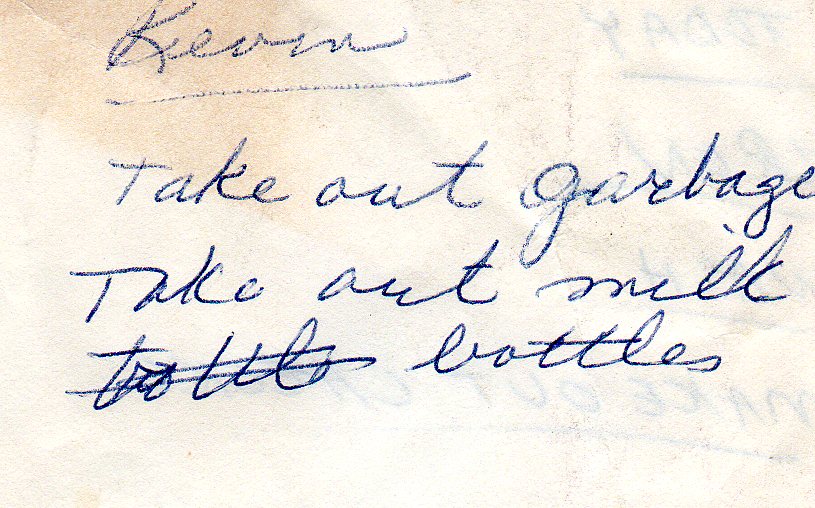 Kevin
Take out garbage
Take out milk
bottles